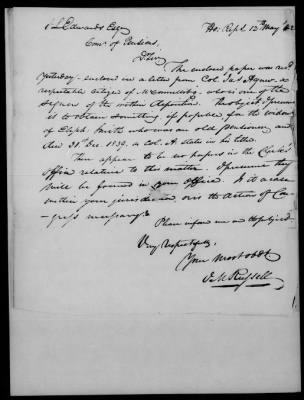 J L Edwards Esqr Ho: Rept. 12th May 1842
Comr of Pensions.
D Sir,
The enclosed paper was recd
yesterday - enclosed in a letter from Col: Jas Agnew, a
respectable citizen of McConnellsbg. who is one of the
signers of the within deposition. The object I presume
is to obtain something, if possible, for the widow
of Elijah Smith who was an old pensioner and
died 31. Dec. 1839, as Col. A. states in his letter.
There appear to be no papers in the Clerk's
office relative to this matter. I presume they
will be found in your office. Is it a case
within your jurisdiction, or is the action of Con-
gress necessary?
Please inform me on the subject.
Very respectfully,
Your most obdt
J. M. Russell